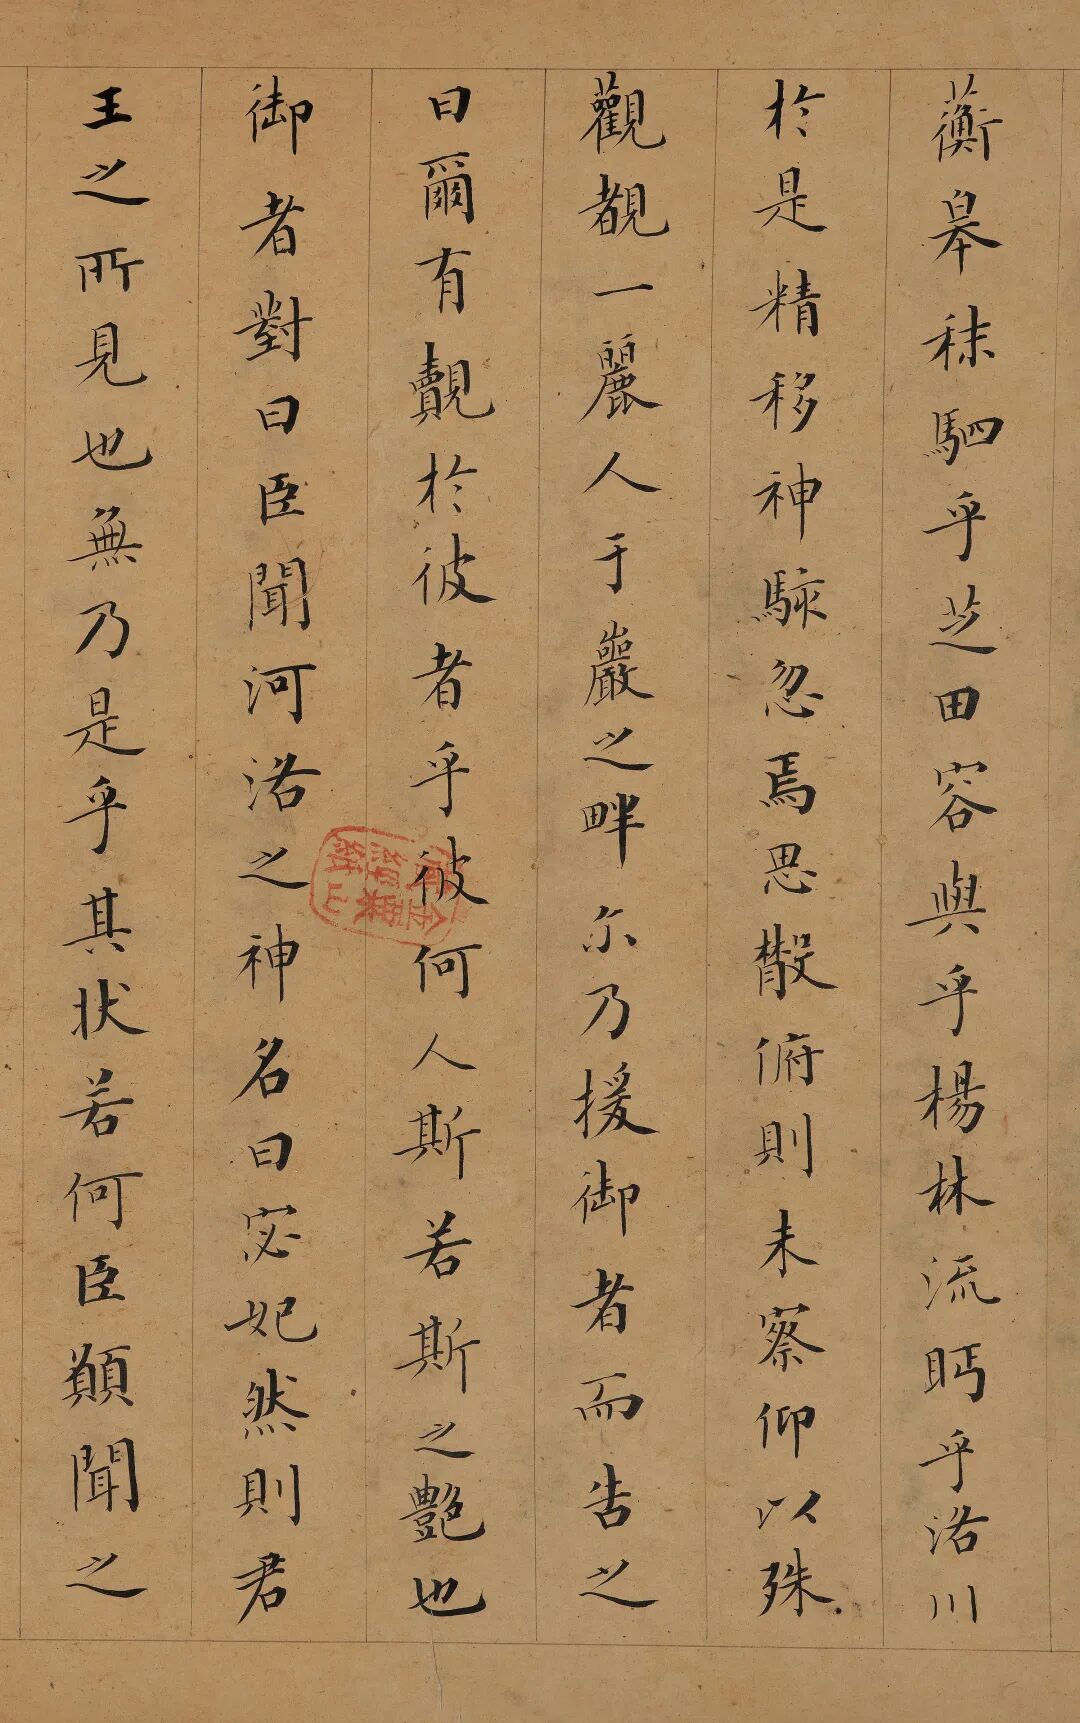 蘅皋秣駟乎芝田容與乎楊林流眄乎洛川
於是精移神駭忽焉思散俯則未察仰以殊
觀覩一麗人于巖之畔尔乃援御者而告之
曰爾有覿於彼者乎彼何人斯若斯之艷也
御者對曰臣聞河洛之神名曰宓妃然則君
王之所見也無乃是乎其狀若何臣願聞之